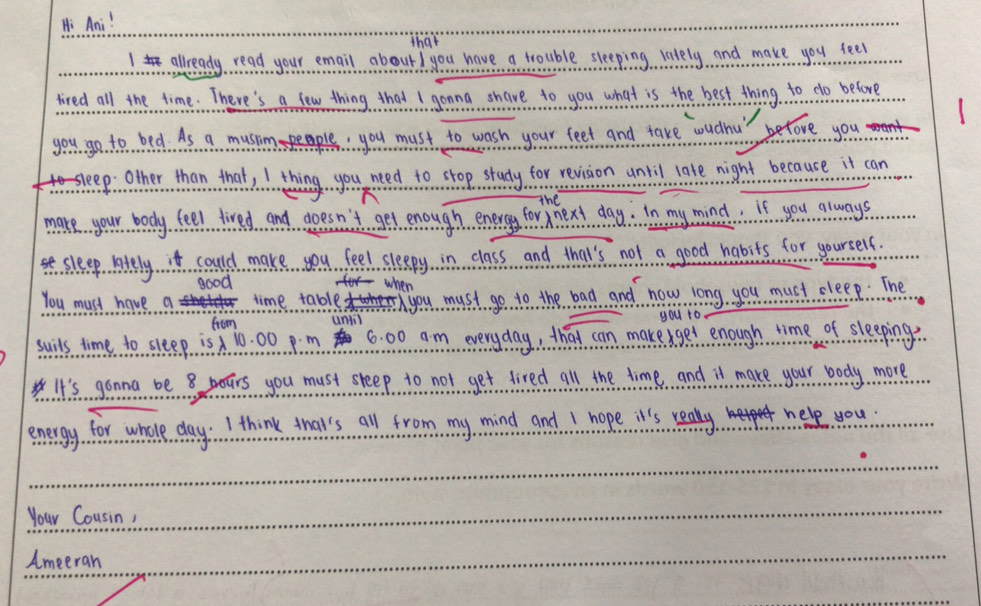 Hi Ani!
I allready read your email about that you have a trouble sleeping lately and make you feel
tired all the time. There's a few thing that I gonna share to you what is the best thing to do before
you go to bed. As a muslim people, you must to wash your feet and take 'wudhu' before you want
to sleep. Other than that, I thing you need to stop study for revision until late night because it can
make your body feel tired and doesn't get enough energy for the next day. In my mind, if you always
sleep lately it could make you feel sleepy in class and that's not a good habits for yourself.
You must have a good time table when you must go to the bad and how long you must sleep. The
suits time to sleep is from 10.00 p.m until 6.00 a.m everyday, that can make you to get enough time of sleeping.
It's gonna be 8 hours you must sleep to not get tired all the time and it make your body more
energy for whole day. I think that's all from my mind and I hope it's really helped help you.
Your Cousin,
Ameerah